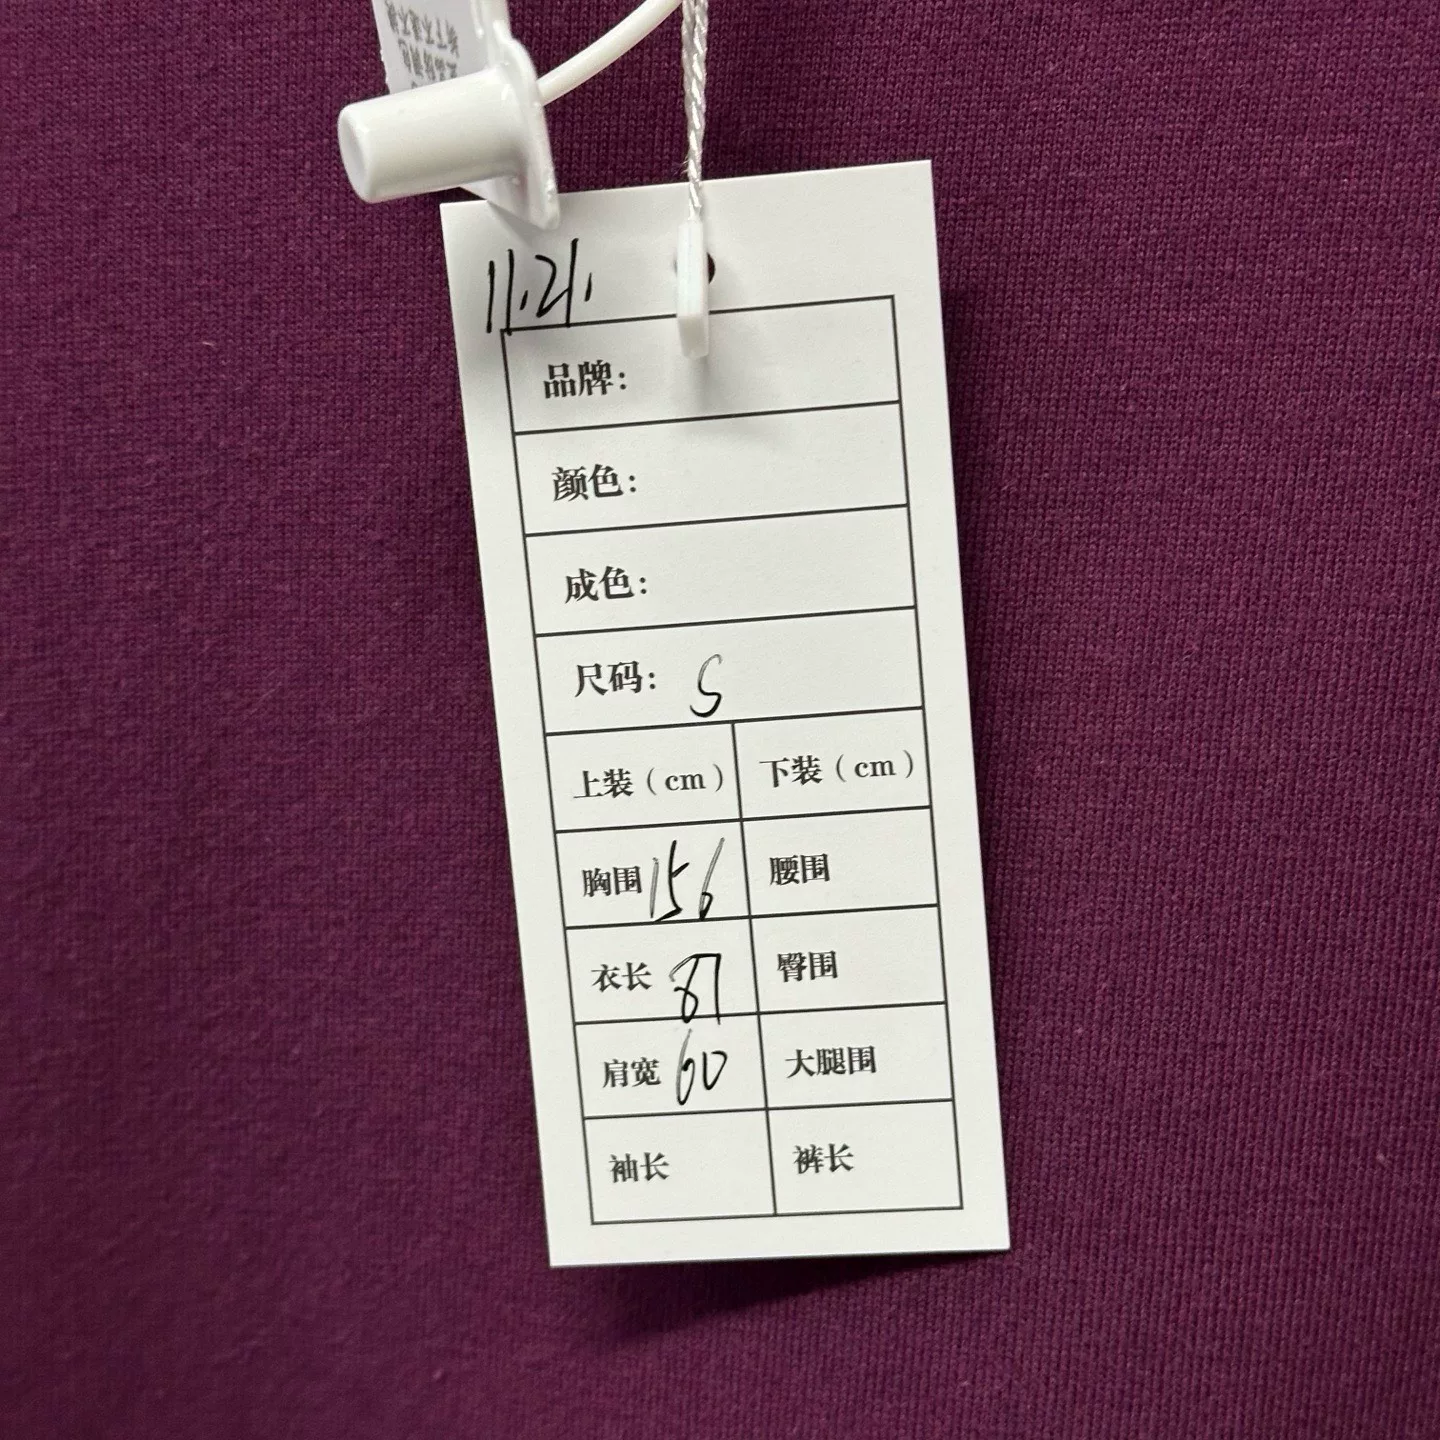 11.21.
品牌：
颜色：
成色：
尺码： S
上装（cm） 下装（cm）
胸围 156 腰围
衣长 87 臀围
肩宽 60 大腿围
袖长 裤长